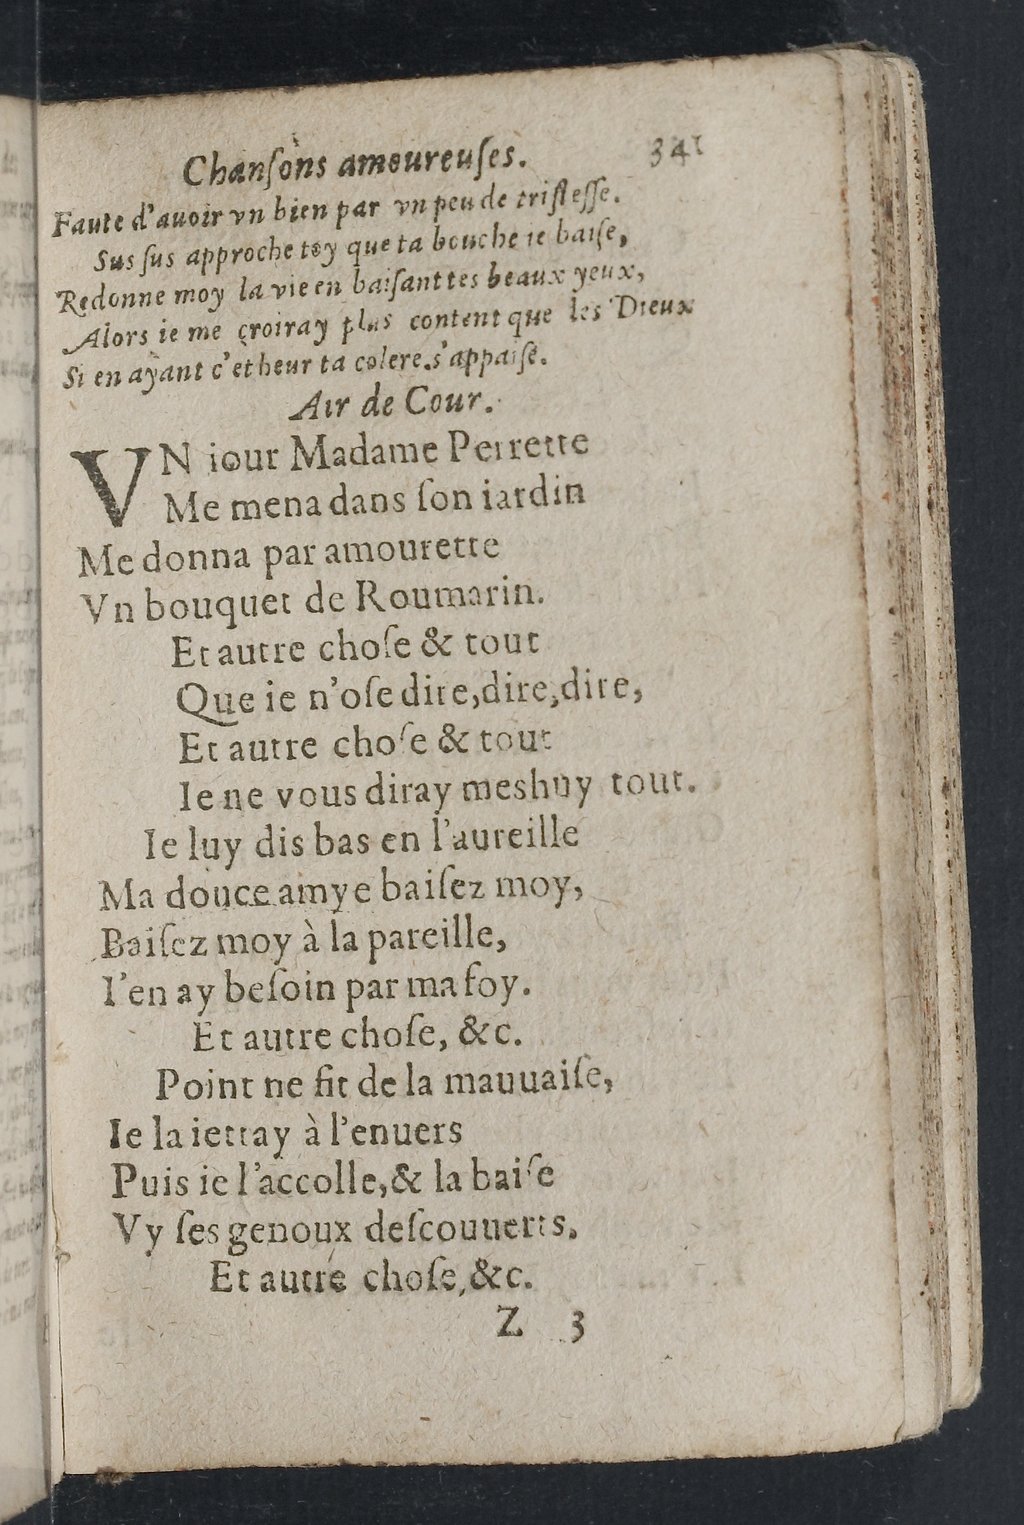 Chanſons amoureuſes. 341
Faute d'auoir vn bien par vn peu de triſteſſe.
Sus ſus approche toy que ta bouche ie baiſe,
Redonne moy la vie en baiſant tes beaux yeux,
Alors ie me croiray plus content que les Dieux
Si en ayant c'et heur ta colere s'appaiſe.
Air de Cour.
VN iour Madame Perrette
Me mena dans ſon iardin
Me donna par amourette
Vn bouquet de Roumarin.
Et autre choſe & tout
Que ie n'oſe dire, dire, dire,
Et autre choſe & tout
Ie ne vous diray meshuy tout.
Ie luy dis bas en l'aureille
Ma douce amye baiſez moy,
Baiſez moy à la pareille,
I'en ay beſoin par ma foy.
Et autre choſe, &c.
Point ne fit de la mauuaiſe,
Ie la iettay à l'enuers
Puis ie l'accolle, & la baiſe
Vy ſes genoux deſcouuerts.
Et autre choſe, &c.
Z 3